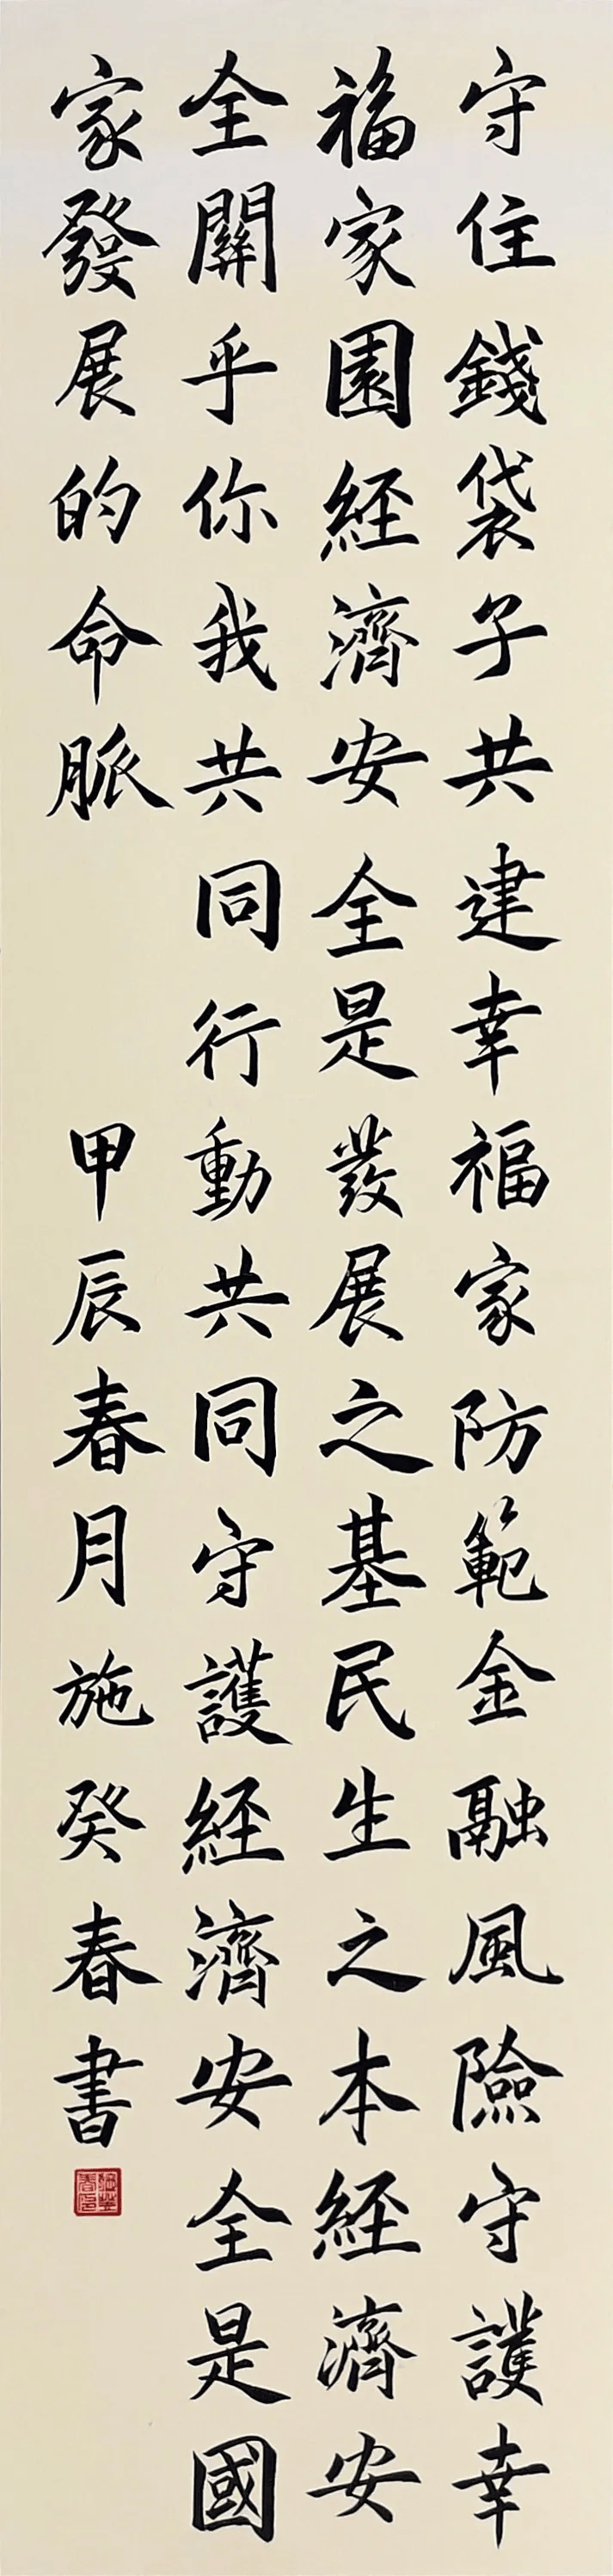 守住錢袋子共建幸福家防範金融風險守護幸
福家園経濟安全是發展之基民生之本経濟安
全關乎你我共同行動共同守護経濟安全是國
家發展的命脈 甲辰春月施癸春書